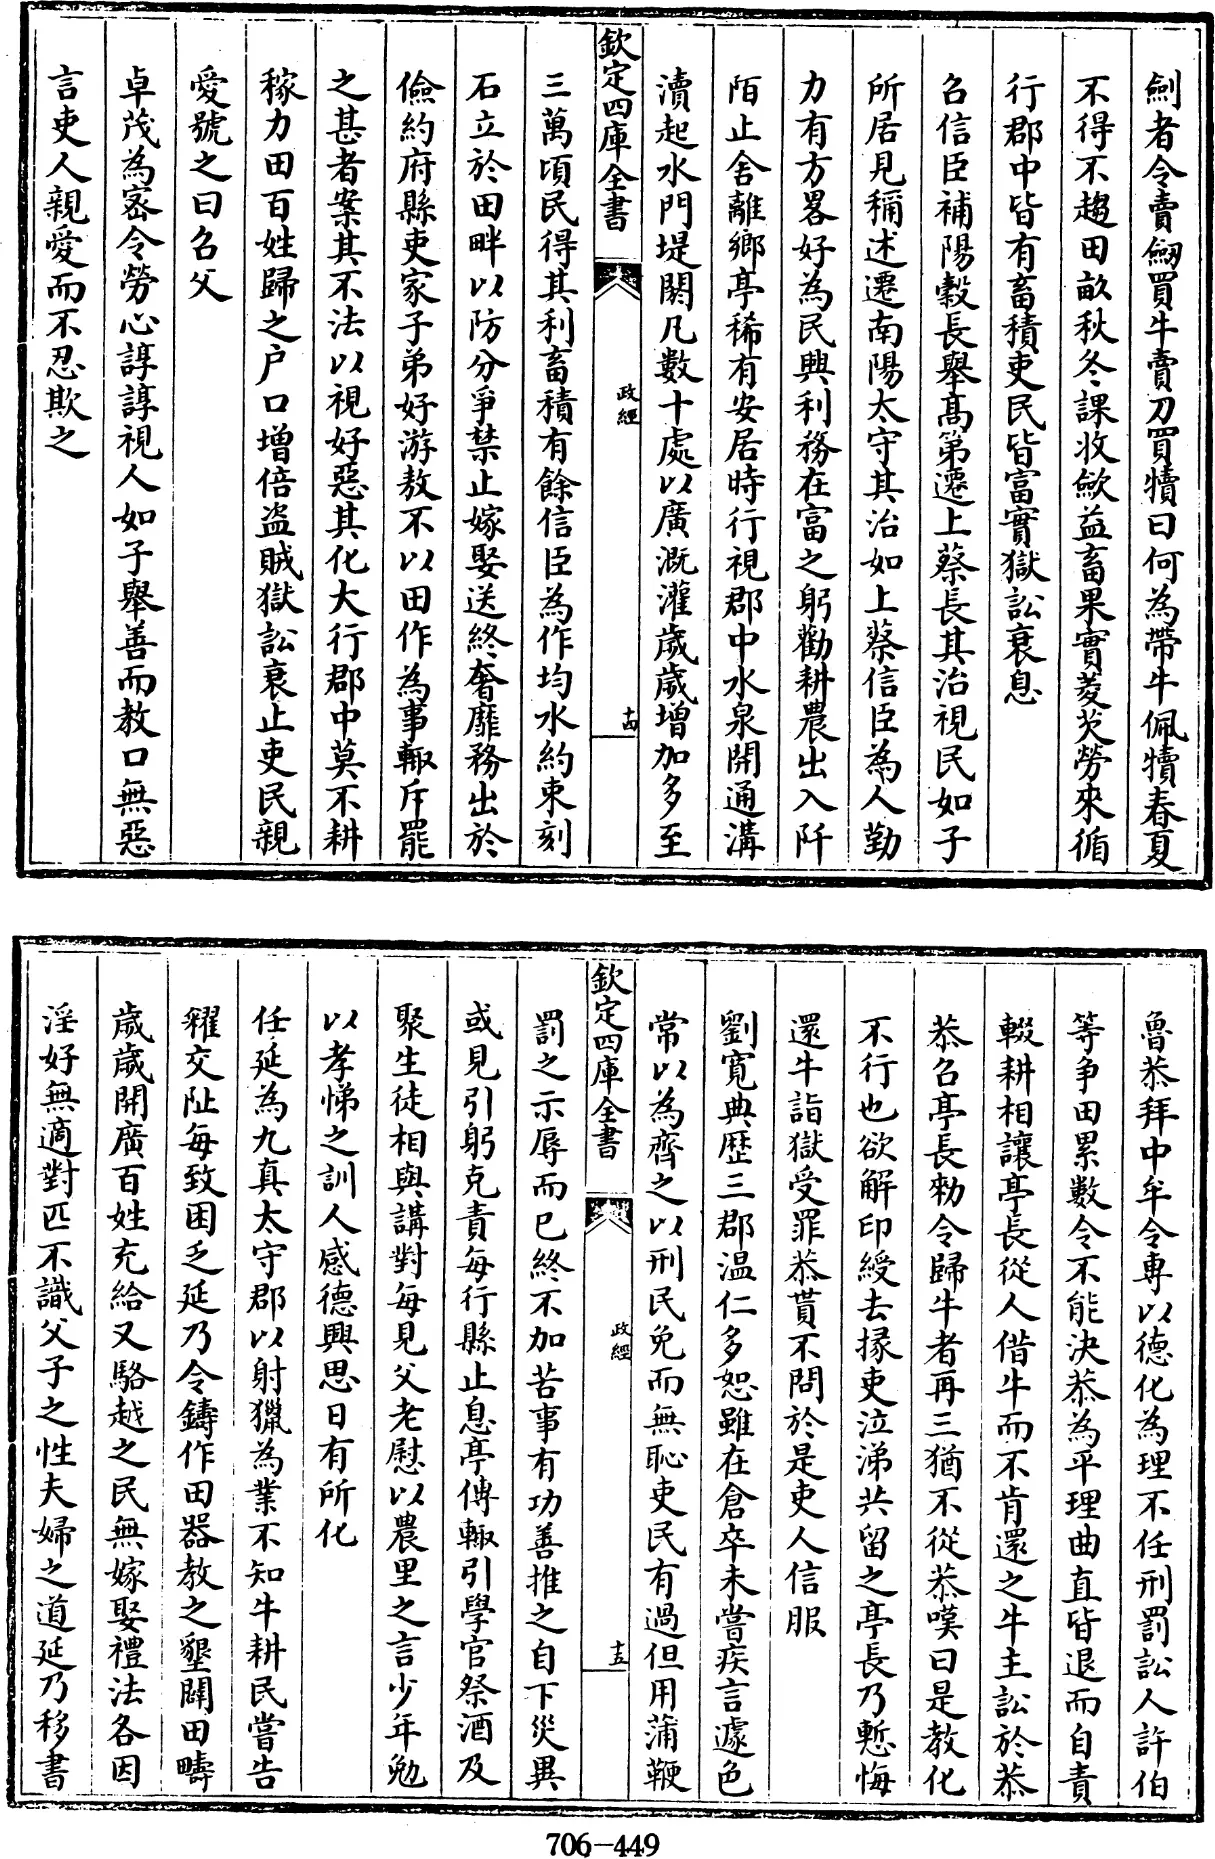 劍者令賣劒買牛賣刀買犢曰何為帶牛佩犢春夏
不得不趨田畝秋冬課收歛益畜果實菱芡勞來循
行郡中皆有畜積吏民皆富實獄訟衰息
召信臣補陽穀長舉髙第遷上蔡長其治視民如子
所居見稱述遷南陽太守其治如上蔡信臣為人勤
力有方畧好為民興利務在富之躬勸耕農出入阡
陌止舍離鄉亭稀有安居時行視郡中水泉開通溝
瀆起水門堤閼凡數十處以廣溉灌歲歲增加多至
欽定四庫全書
政經
十四
三萬頃民得其利畜積有餘信臣為作均水約束刻
石立於田畔以防分爭禁止嫁娶送終奢靡務出於
儉約府縣吏家子弟好游敖不以田作為事輙斥罷
之甚者案其不法以視好惡其化大行郡中莫不耕
稼力田百姓歸之户口增倍盗賊獄訟衰止吏民親
愛號之曰召父
卓茂為宻令勞心諄諄視人如子舉善而教口無惡
言吏人親愛而不忍欺之
魯恭拜中牟令專以德化為理不任刑罰訟人許伯
等爭田累數令不能決恭為平理曲直皆退而自責
輟耕相讓亭長從人借牛而不肯還之牛主訟於恭
恭召亭長勑令歸牛者再三猶不從恭嘆曰是教化
不行也欲解印綬去掾吏泣涕共留之亭長乃慙悔
還牛詣獄受罪恭貰不問於是吏人信服
劉寛典歴三郡温仁多恕雖在倉卒未嘗疾言遽色
常以為齊之以刑民免而無恥吏民有過但用蒲鞭
欽定四庫全書
政經
十五
罰之示辱而已終不加苦事有功善推之自下災異
或見引躬克責每行縣止息亭傳輙引學官祭酒及
聚生徒相與講對每見父老慰以農里之言少年勉
以孝悌之訓人感德興思日有所化
任延為九真太守郡以射獵為業不知牛耕民嘗告
糴交阯每致困乏延乃令鑄作田器教之墾闢田疇
歲歲開廣百姓充給又駱越之民無嫁娶禮法各因
淫好無適對匹不識父子之性夫婦之道延乃移書
706-449